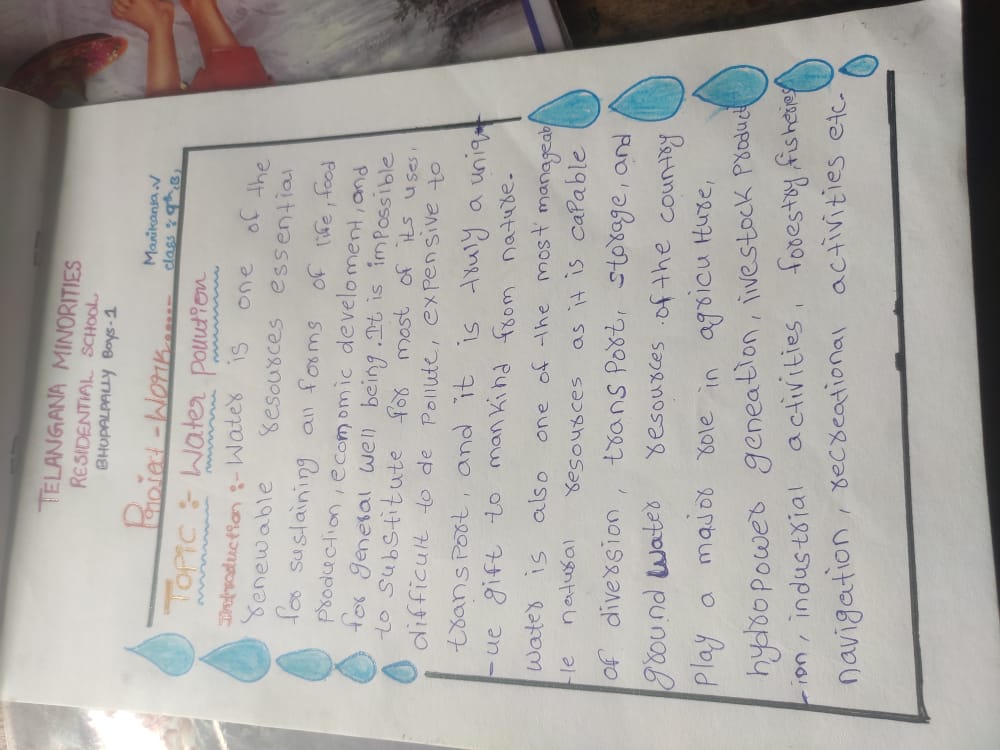 TELANGANA MINORITIES
RESIDENTIAL SCHOOL
BHUPALPALLY Boys-1
Manikanta.V
class : 9th,B,
Project - Work......
TOPIC :- Water pollution
Introduction :- Water is one of the
renewable resources essential
for sustaining all forms of life, food
production, ecomomic develoment, and
for general well being. It is impossible
to substitute for most of its uses,
difficult to de pollute, expensive to
transport, and it is truly a uniq
-ue gift to mankind from nature.
Water is also one of the most manageab
-le natural resources as it is capable
of diversion, transport, storage, and
ground water resources of the country
Play a major role in agriculture,
hydropower geneation, livestock product
-ion, industrial activities, forestry, fisheries
navigation, recreational activities etc.